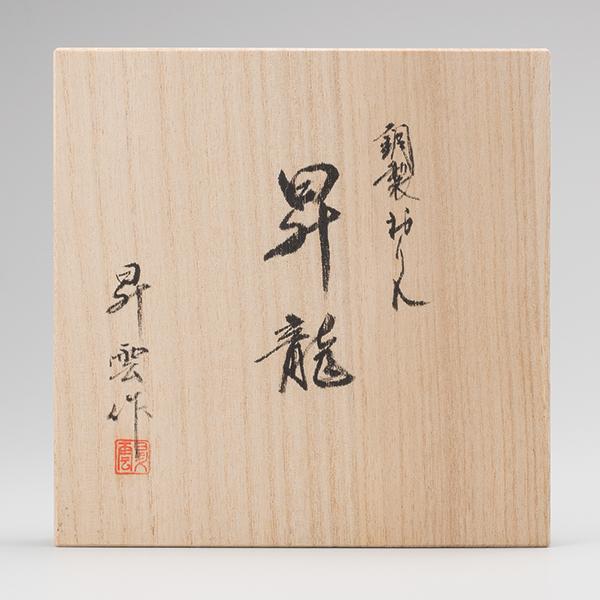 銅製おりん
昇龍
昇雲作